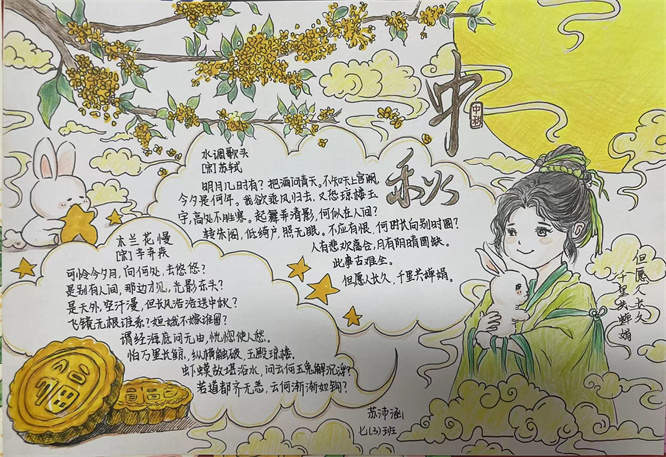 中秋
中秋
水调歌头
[宋]苏轼
明月几时有?把酒问青天。不知天上宫阙,
今夕是何年。我欲乘风归去,又恐琼楼玉
宇,高处不胜寒。起舞弄清影,何似在人间?
转朱阁,低绮户,照无眠。不应有恨,何时长向别时圆?
人有悲欢离合,月有阴晴圆缺。
此事古难全。
但愿人长久,千里共婵娟。
木兰花慢
[宋]辛弃疾
可怜今夕月,向何处,去悠悠?
是别有人间,那边才见,光影东头?
是天外,空汗漫,但长风浩浩送中秋?
飞镜无根谁系?姮娥不嫁谁留?
谓经海底问无由,恍惚使人愁。
怕万里长鲸,纵横触破,玉殿琼楼。
虾蟆故堪浴水,问云何玉兔解沉浮?
若道都齐无恙,云何渐渐如钩?
但愿人长久
千里共婵娟
福
苏沛涵
七(3)班